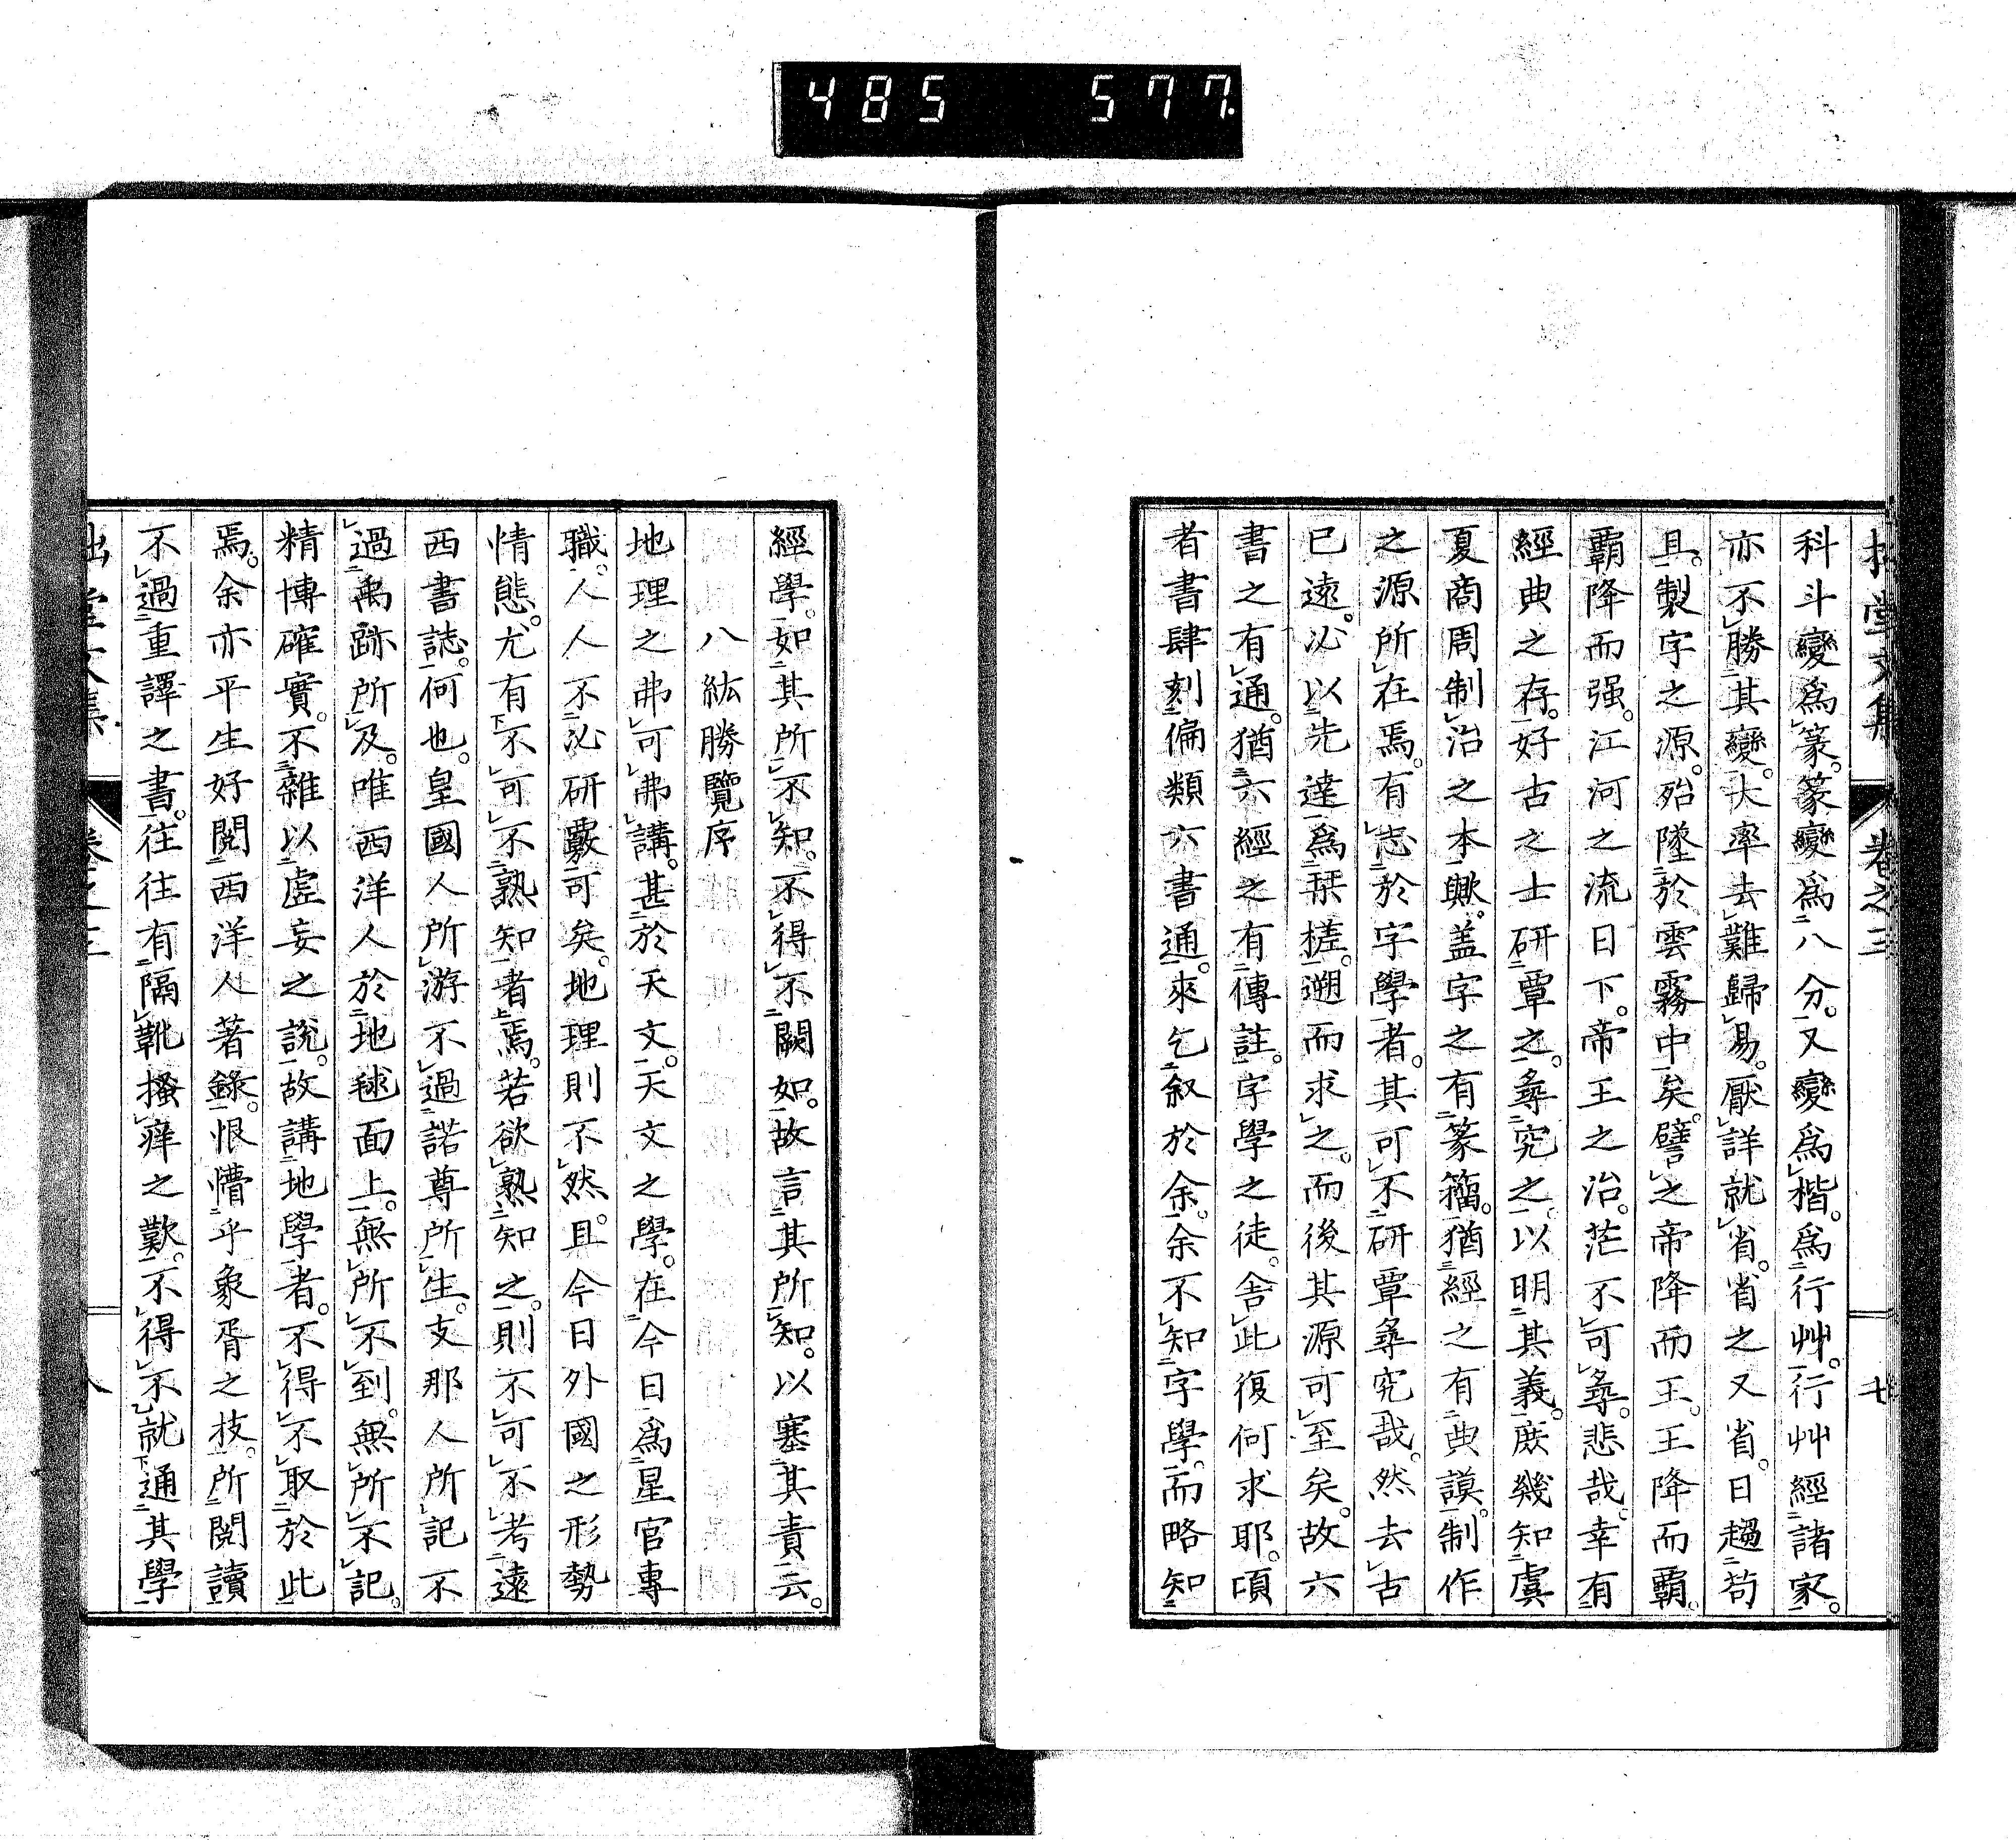 485 577.
拙堂文集 卷之三 七
科斗變爲篆。篆變爲八分。又變爲楷。爲行艸。行艸經諸家。
亦不勝其變。大率去難歸易。厭詳就省。省之又省。日趨苟
且。製字之源。殆墜於雲霧中矣。譬之帝降而王。王降而覇。
覇降而强。江河之流日下。帝王之治。茫不可尋。悲哉。幸有
經典之存。好古之士研覃之。尋究之。以明其義。庶幾知虞
夏商周制治之本歟。盖字之有篆籀。猶經之有典謨。制作
之源所在焉。有志於字學者。其可不研覃尋究哉。然去古
已遠。必以先達爲栞槎。遡而求之。而後其源可至矣。故六
書之有通。猶六經之有傳註。字學之徒。舍此復何求耶。頃
者書肆刻偏類六書通。來乞叙於余。余不知字學。而略知
經學。如其所不知。不得不闕如。故言其所知。以塞其責云。
八紘勝覽序
地理之弗可弗講。甚於天文。天文之學。在今日爲星官專
職。人人不必研覈可矣。地理則不然。且今日外國之形勢
情態。尤有不可不熟知者焉。若欲熟知之。則不可不考遠
西書誌。何也。皇國人所游不過諾尊所生。支那人所記不
過禹跡所及。唯西洋人於地毬面上。無所不到。無所不記。
精博確實。不雜以虛妄之說。故講地學者。不得不取於此
焉。余亦平生好閱西洋人著錄。恨懵乎象胥之技。所閱讀
不過重譯之書。往往有隔靴搔痒之歎。不得不就通其學
拙堂文集 卷之三 八